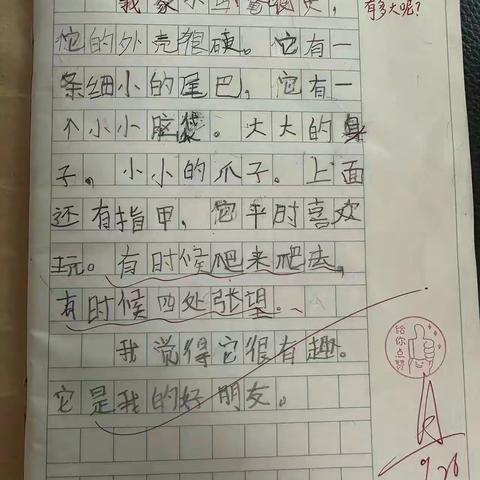 有多大呢？
我家小乌龟很大，
它的外壳很硬。它有一
条细小的尾巴，它有一
个小小脑袋。大大的身
子，小小的爪子。上面
还有指甲，它平时喜欢
玩。有时候爬来爬去，
有时候四处张望。
我觉得它很有趣。
它是我的好朋友。
给你点赞
A
9.26